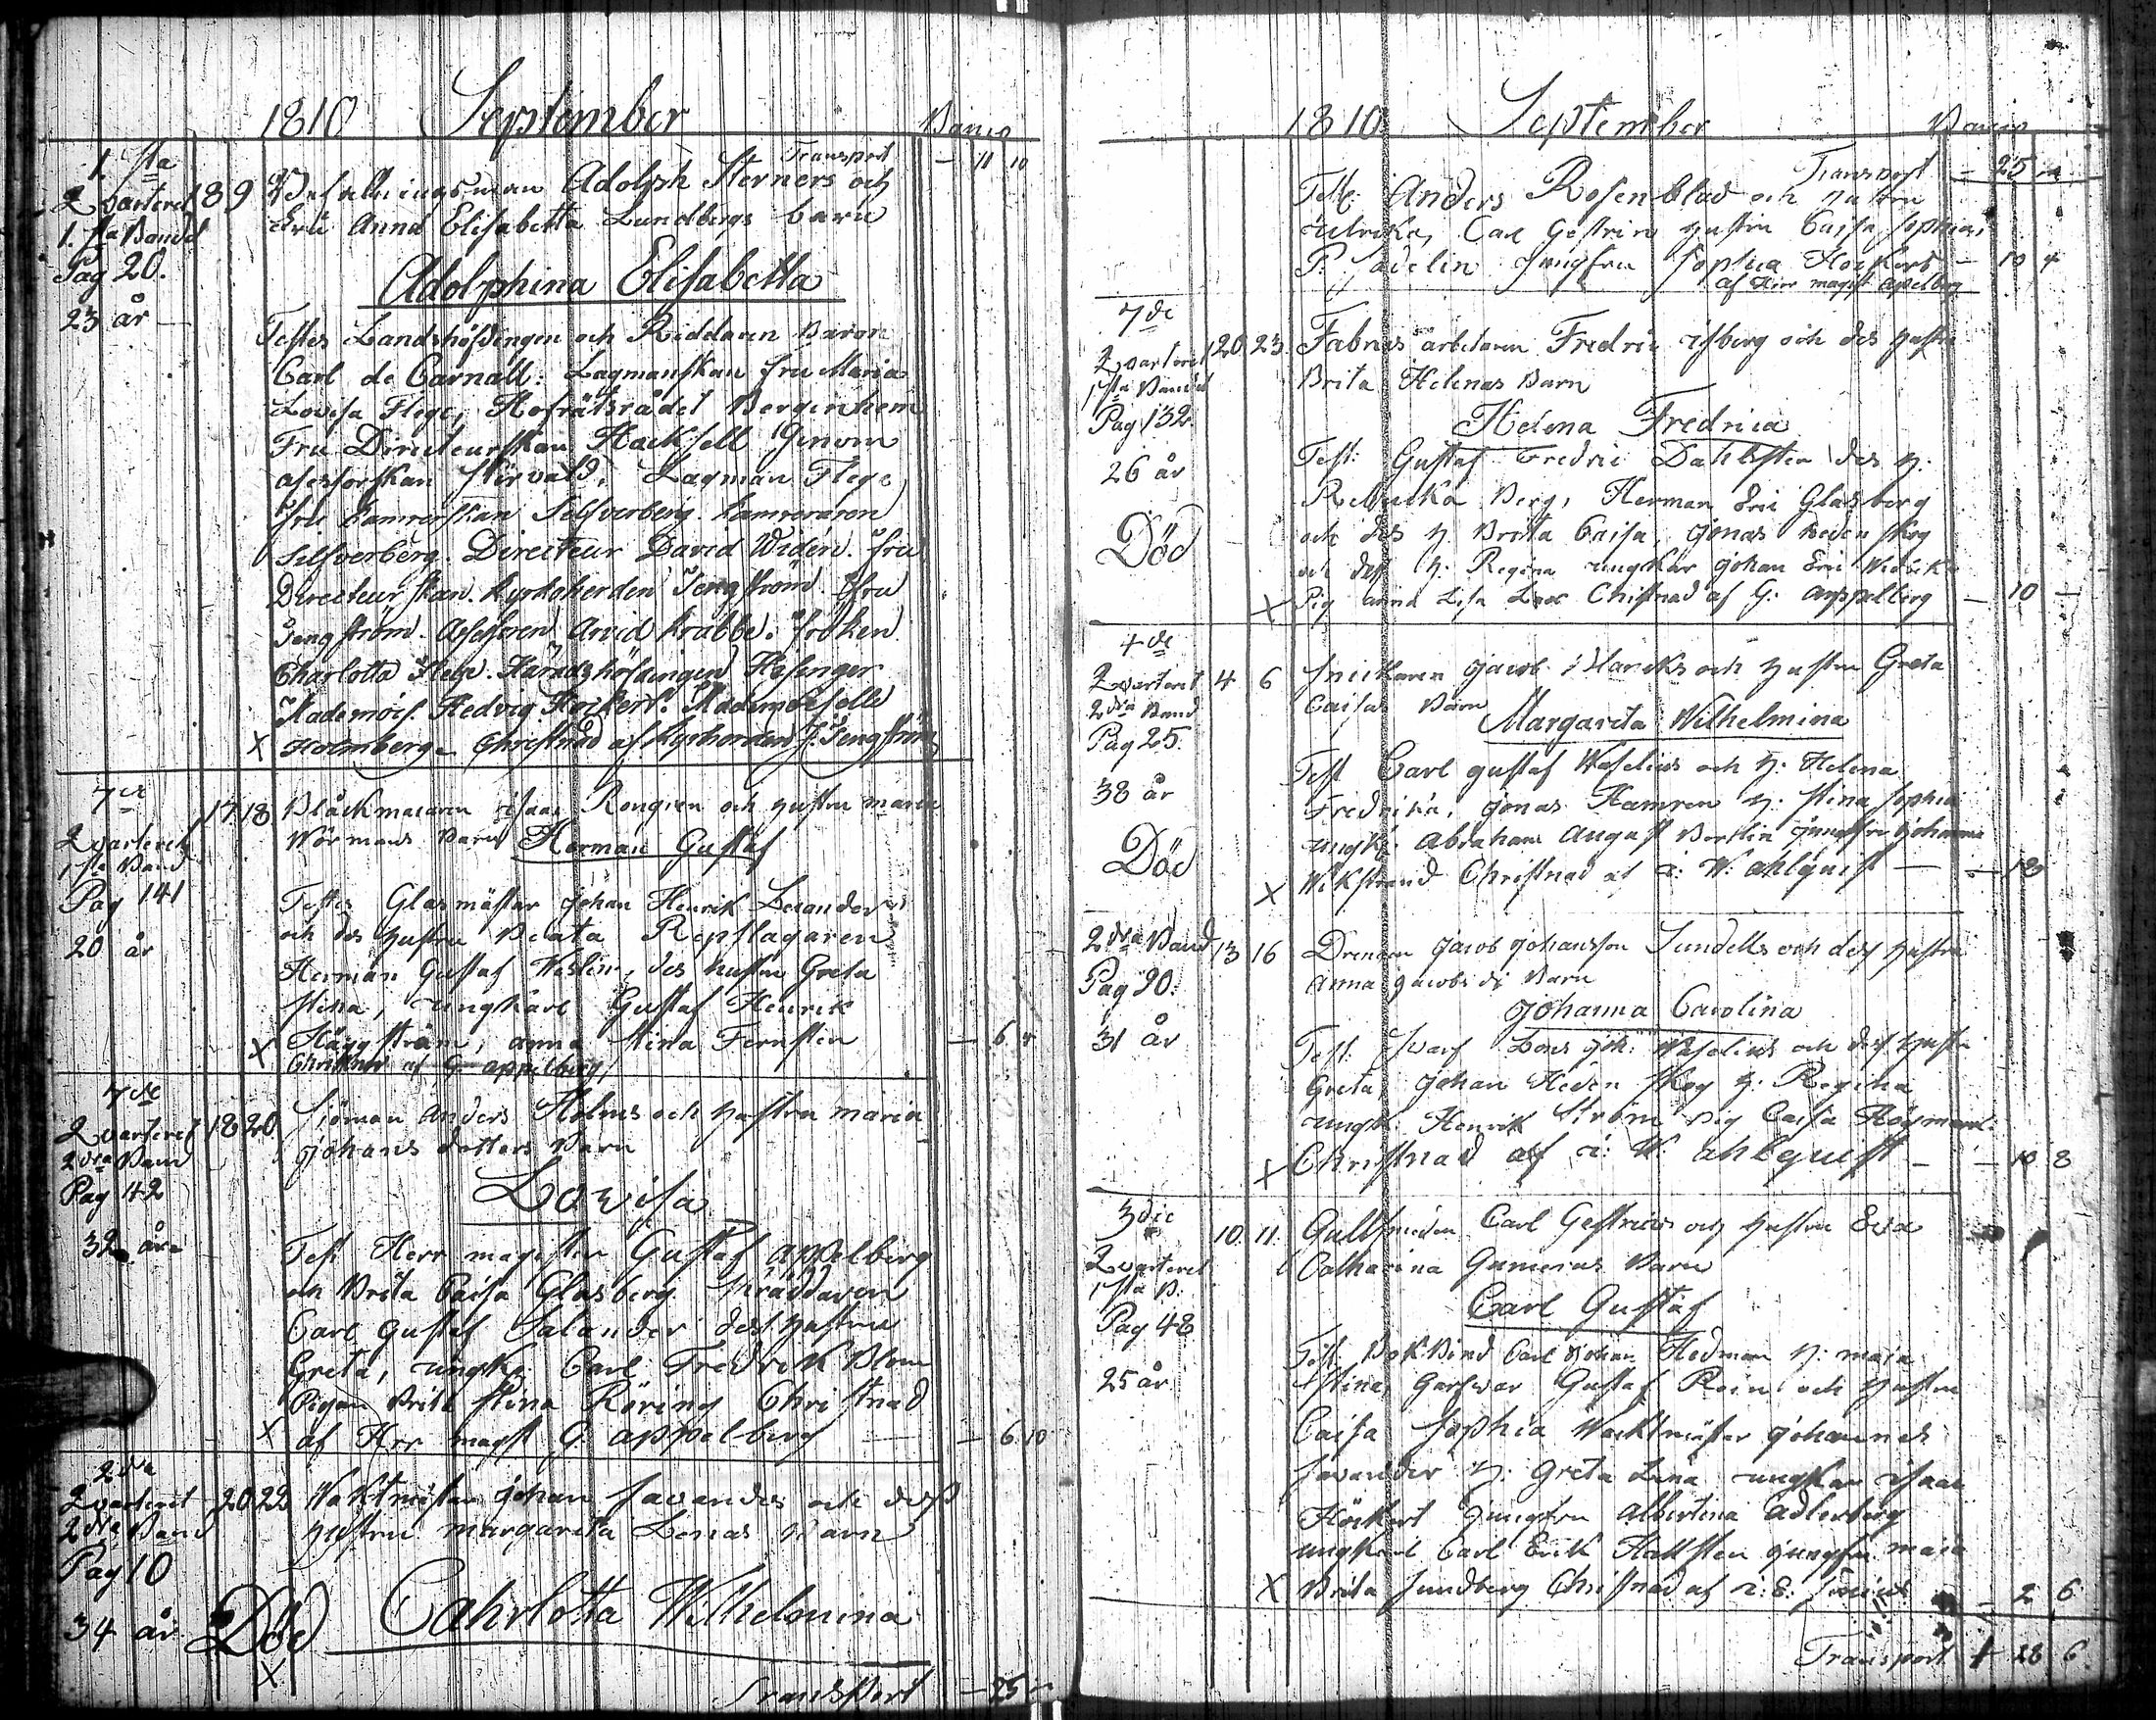 1810 September Banco
Transport — 11 10
1. sta
Qvarteret 8 9 Befallningsman Adolph Sterners och
1. sta Bandet Fru Anna Elisabetta Lundbergs barn
Pag 20.
Adolphina Elisabetta
23 år
Testes Landshöfdingen och Riddaren Baron
Carl de Carnall: Lagmanskan fru Maria
Lovisa Flege, Hofrätsrådet Bergenhem
Fru Directeurskan Hacksell Genom
assessorskan Lagman Flege
fru Kamrerskan Selfverberg. Kamreraren
Silfverberg. Directeur David Widén. fru
Directeurskan. Kyrkoherden Tengström. fru
Tengström. Assessoren Arvid Krabbe. fröken
Charlotta Häradshöfdingen Hesenger
Mademois. Hedvig Höckert. Mademoiselle
X Holmberg. Christnad af Kyrkoherden J. Tengström
7de
17 18 Blåckmacaren isaac Rongren och hustru maria
Qvarteret Wörmans Barn Herman Gustaf
1sta Band
Pag 141
Testes Glasmästar Johan Henrik Levander
20 år och des hustru Beata Repslagaren
Herman Gustaf Weslin, des hustru Greta
Stina, ungkarl Gustaf Henrik
X Häggström, anna Stina Fernsten — 6 8
Christnad af G appelberg
7de
Qvarteret 18 20 Sjöman Anders Holms och hustru maria
2dra Band Johans dotters Barn
Pag 42
Lowisa
32 år
Test Herr magister Gustaf appelberg
och Brita Caisa Glasberg skräddaren
Carl Gustaf Salander dess hustru
Greta, ungk: Carl Fredrik Blom
Pigan Brita Stina Röring Christnad
X af Herr magst G. appelberg — 6 10
2dra
Qvarteret 20 22 Waktmästar Johan Savander och dess
2dra Band hustru margareta Lenas Barn
Pag 10
34 år Död Cahrlotta Wilhelmina
X
Transport — 25
1810 September Banco
Transport — 25
Test: Anders Rosenblad och hustru
Ulrika, Carl Gestrin hustru Caisa Sophia,
P. Sadelin Jungfru Sophia Höckert — 10 4
af Herr magist Apelberg
7de
Qvarteret 20 23 Fabriks arbetaren Fredric isberg och des hustru
1sta Bandet Brita Helenas Barn
Pag 132.
Helena Fredrica
26 år Test: Gustaf Fredric Dahlsten des h.
Rebecka Berg, Herman Eric Glasberg
Död och des h. Brita Caisa, Jonas Hedenskog
och des h: Regina ungkar Johan Eric
X Pig anna Lisa Christnad af G. Appelberg — 10 —
4de
Qvarteret 4 6 Snickaren Jacob och hustru Greta
2dra Band Caisas Barn
Pag 25. Margareta Wilhelmina
38 år Test Carl Gustaf Waselius och h. Helena
Fredrika, Jonas Hamren h: Stina Sophia
Död ungk: Abraham August Jungfru Johanna
X Wikstrand Christnad af i: W: ahlquist — 18
2dra Band 13 16 Drengen Jacob Johansson Sundells och dess hustru
Pag 90. Anna Jacobs ds Barn
Johanna Carolina
31 år
Test: Swarf Lars Joh: Waselius och dess hustru
Greta, Johan Hedenskog h: Regina
ungk. Henrik Ström Pig Caisa Högman.
X Christnad af i: W: ahlquist — 10 8
3die
10 11 Gullsmeden Carl Gestrins och hustru Eva
Qvarteret Catharina Barn
1sta B:
Carl Gustaf
Pag 48
Test. Bok Bind Carl Johan Hedman h: maja
25 år Stina, Garfvar Gustaf Rein och hustru
Caisa Sophia Wacktmäster Johannes
Savander h: Greta Lena ungkar isaac
Höckert Jungfru Albertina Adlerberg
ungkarl Carl Erik Hallsten Jungfru maja
X Brita Sundberg Christnad af — 2 6
Transport 1 28 6